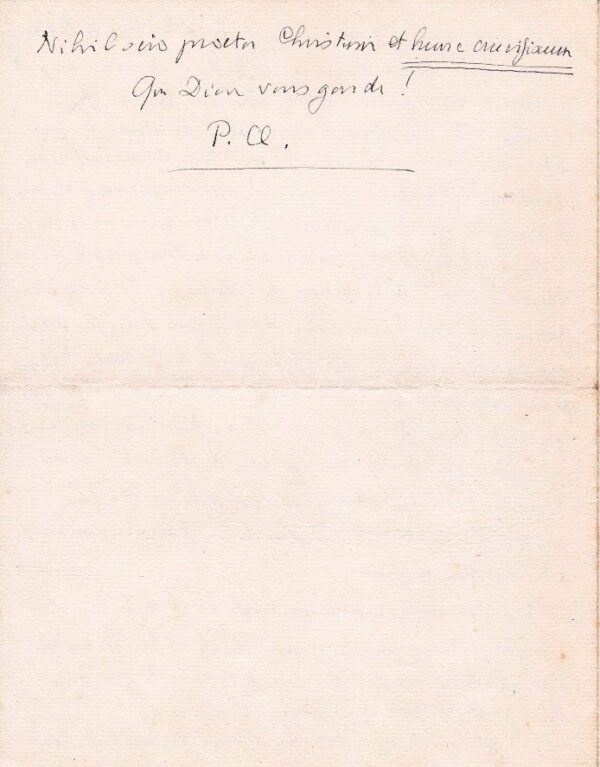 Nihil scio praeter Christum et hunc crucifixum
Que Dieu vous garde !
P. Cl.